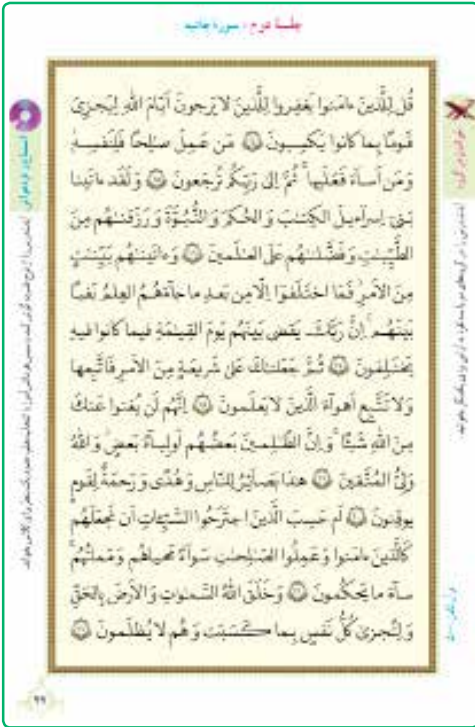 جلسهٔ دوم : سورهٔ جاثیه
قُل لِلَّذينَ ءامَنوا يَغفِروا لِلَّذينَ لايَرجونَ اَيّامَ اللهِ لِيَجزِىَ
قَومًا بِما كانوا يَكسِبونَ ١٤ مَن عَمِلَ صالِحًا فَلِنَفسِه
وَ مَن اَساءَ فَعَلَيها ثُمَّ اِلىٰ رَبِّكُم تُرجَعونَ ١٥ وَ لَقَد ءاتَينا
بَنى اِسراءيلَ الكِتابَ وَ الحُكمَ وَ النُّبُوَّةَ وَ رَزَقناهُم مِنَ
الطَّيِّباتِ وَ فَضَّلناهُم عَلَى العالَمينَ ١٦ وَ ءاتَيناهُم بَيِّناتٍ
مِنَ الاَمرِ فَمَا اختَلَفوا اِلّا مِن بَعدِ ما جاءَهُمُ العِلمُ بَغيًا
بَينَهُم اِنَّ رَبَّكَ يَقضى بَينَهُم يَومَ القِيامَةِ فيما كانوا فيهِ
يَختَلِفونَ ١٧ ثُمَّ جَعَلناكَ عَلىٰ شَريعَةٍ مِنَ الاَمرِ فَاتَّبِعها
وَ لا تَتَّبِع اَهواءَ الَّذينَ لا يَعلَمونَ ١٨ اِنَّهُم لَن يُغنوا عَنكَ
مِنَ اللهِ شَيئًا وَ اِنَّ الظّالِمينَ بَعضُهُم اَولِياءُ بَعضٍ وَ اللهُ
وَلِىُّ المُتَّقينَ ١٩ هٰذا بَصائِرُ لِلنّاسِ وَ هُدًى وَ رَحمَةٌ لِقَومٍ
يوقِنونَ ٢٠ اَم حَسِبَ الَّذينَ اجتَرَحُوا السَّيِّئاتِ اَن نَجعَلَهُم
كَالَّذينَ ءامَنوا وَ عَمِلُوا الصّالِحاتِ سَواءً مَحياهُم وَ مَماتُهُم
ساءَ ما يَحكُمونَ ٢١ وَ خَلَقَ اللهُ السَّماواتِ وَ الاَرضَ بِالحَقِّ
وَ لِتُجزىٰ كُلُّ نَفسٍ بِما كَسَبَت وَ هُم لا يُظلَمونَ ٢٢